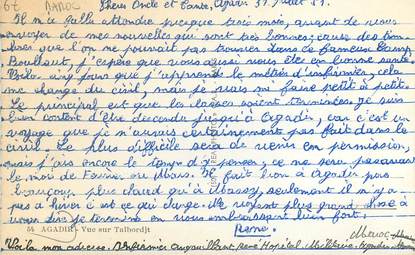 MAROC
Chers Oncle et Tante, Agadir 31 Juillet 51.
Il m'a fallu attendre presque trois mois, avant de vous
envoyer de mes nouvelles qui sont très bonnes; avec des tim-
bres que l'on ne pouvait pas trouver dans ce fameux Camp
J'espère que vous aussi vous êtes en bonne santé.
Voilà cinq jours que j'apprends le métier d'infirmier, cela
me change du civil, mais je vais m'y faire petit à petit.
Le principal est que les classes soient terminées. Je suis
bien content d'être descendu jusqu'à Agadir, car c'est un
voyage que je n'aurais certainement pas fait dans le
civil. Le plus difficile sera de venir en permission,
mais j'ai encore le temps d'y penser, ce ne sera pas avant
le mois de Février ou Mars. Il fait bon à Agadir pas
beaucoup plus chaud qu'à Massy, seulement il n'y a
pas d'hiver c'est ce qui change. Ne voyant plus grand chose à
vous dire je termine en vous embrassant bien fort.
René.
54 AGADIR - Vue sur Talbordjt
Voilà mon adresse. Infirmier René Hôpital Militaire Agadir Maroc